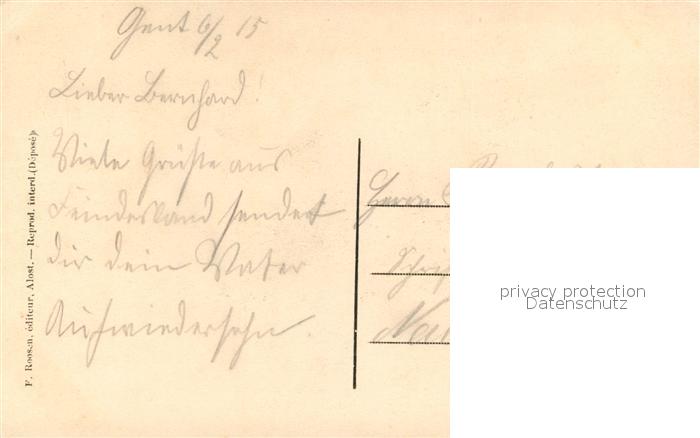 Gent 6/2 15
Lieber Bernhard!
Viele Grüße aus
Feindesland sendet
dir dein Vater
Aufwiedersehn.
Herrn
F. Roosen, éditeur, Alost. — Reprod. interd. (Déposé)
privacy protection
Datenschutz